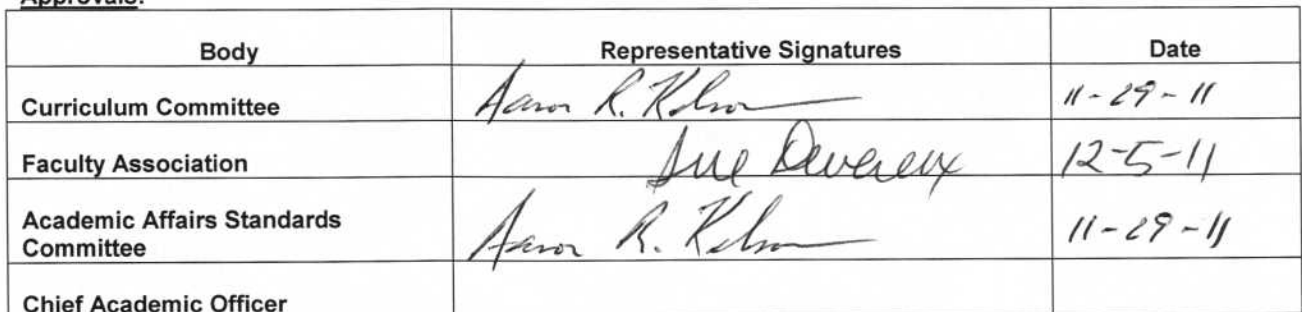 Approvals:
Body Representative Signatures Date
Curriculum Committee Aaron R. Kelson 11-29-11
Faculty Association Sue Devereux 12-5-11
Academic Affairs Standards
Committee Aaron R. Kelson 11-29-11
Chief Academic Officer